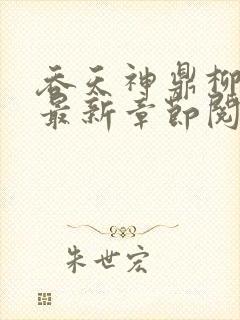 吞天神鼎柳
最新章节阅
朱世宏